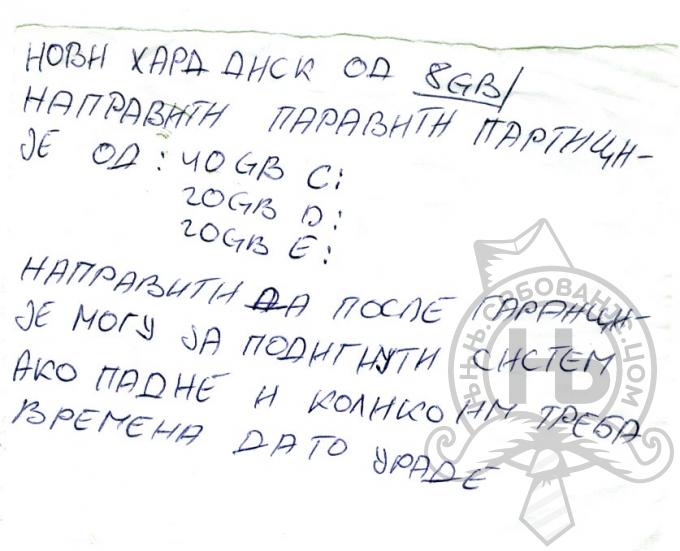 НОВИ ХАРД ДИСК ОД 8GB/
НАПРАВИТИ ПАРАВИТИ ПАРТИЦИ-
ЈЕ ОД: 40GB C:
20GB D:
20GB E:
НАПРАВИТИ ДА ПОСЛЕ ГАРАНЦИ-
ЈЕ МОГУ ЈА ПОДИГНУТИ СИСТЕМ
АКО ПАДНЕ И КОЛИКО ИМ ТРЕБА
ВРЕМЕНА ДА ТО УРАДЕ
WWW.СРБОВАЊЕ.ЦОМ
Њ